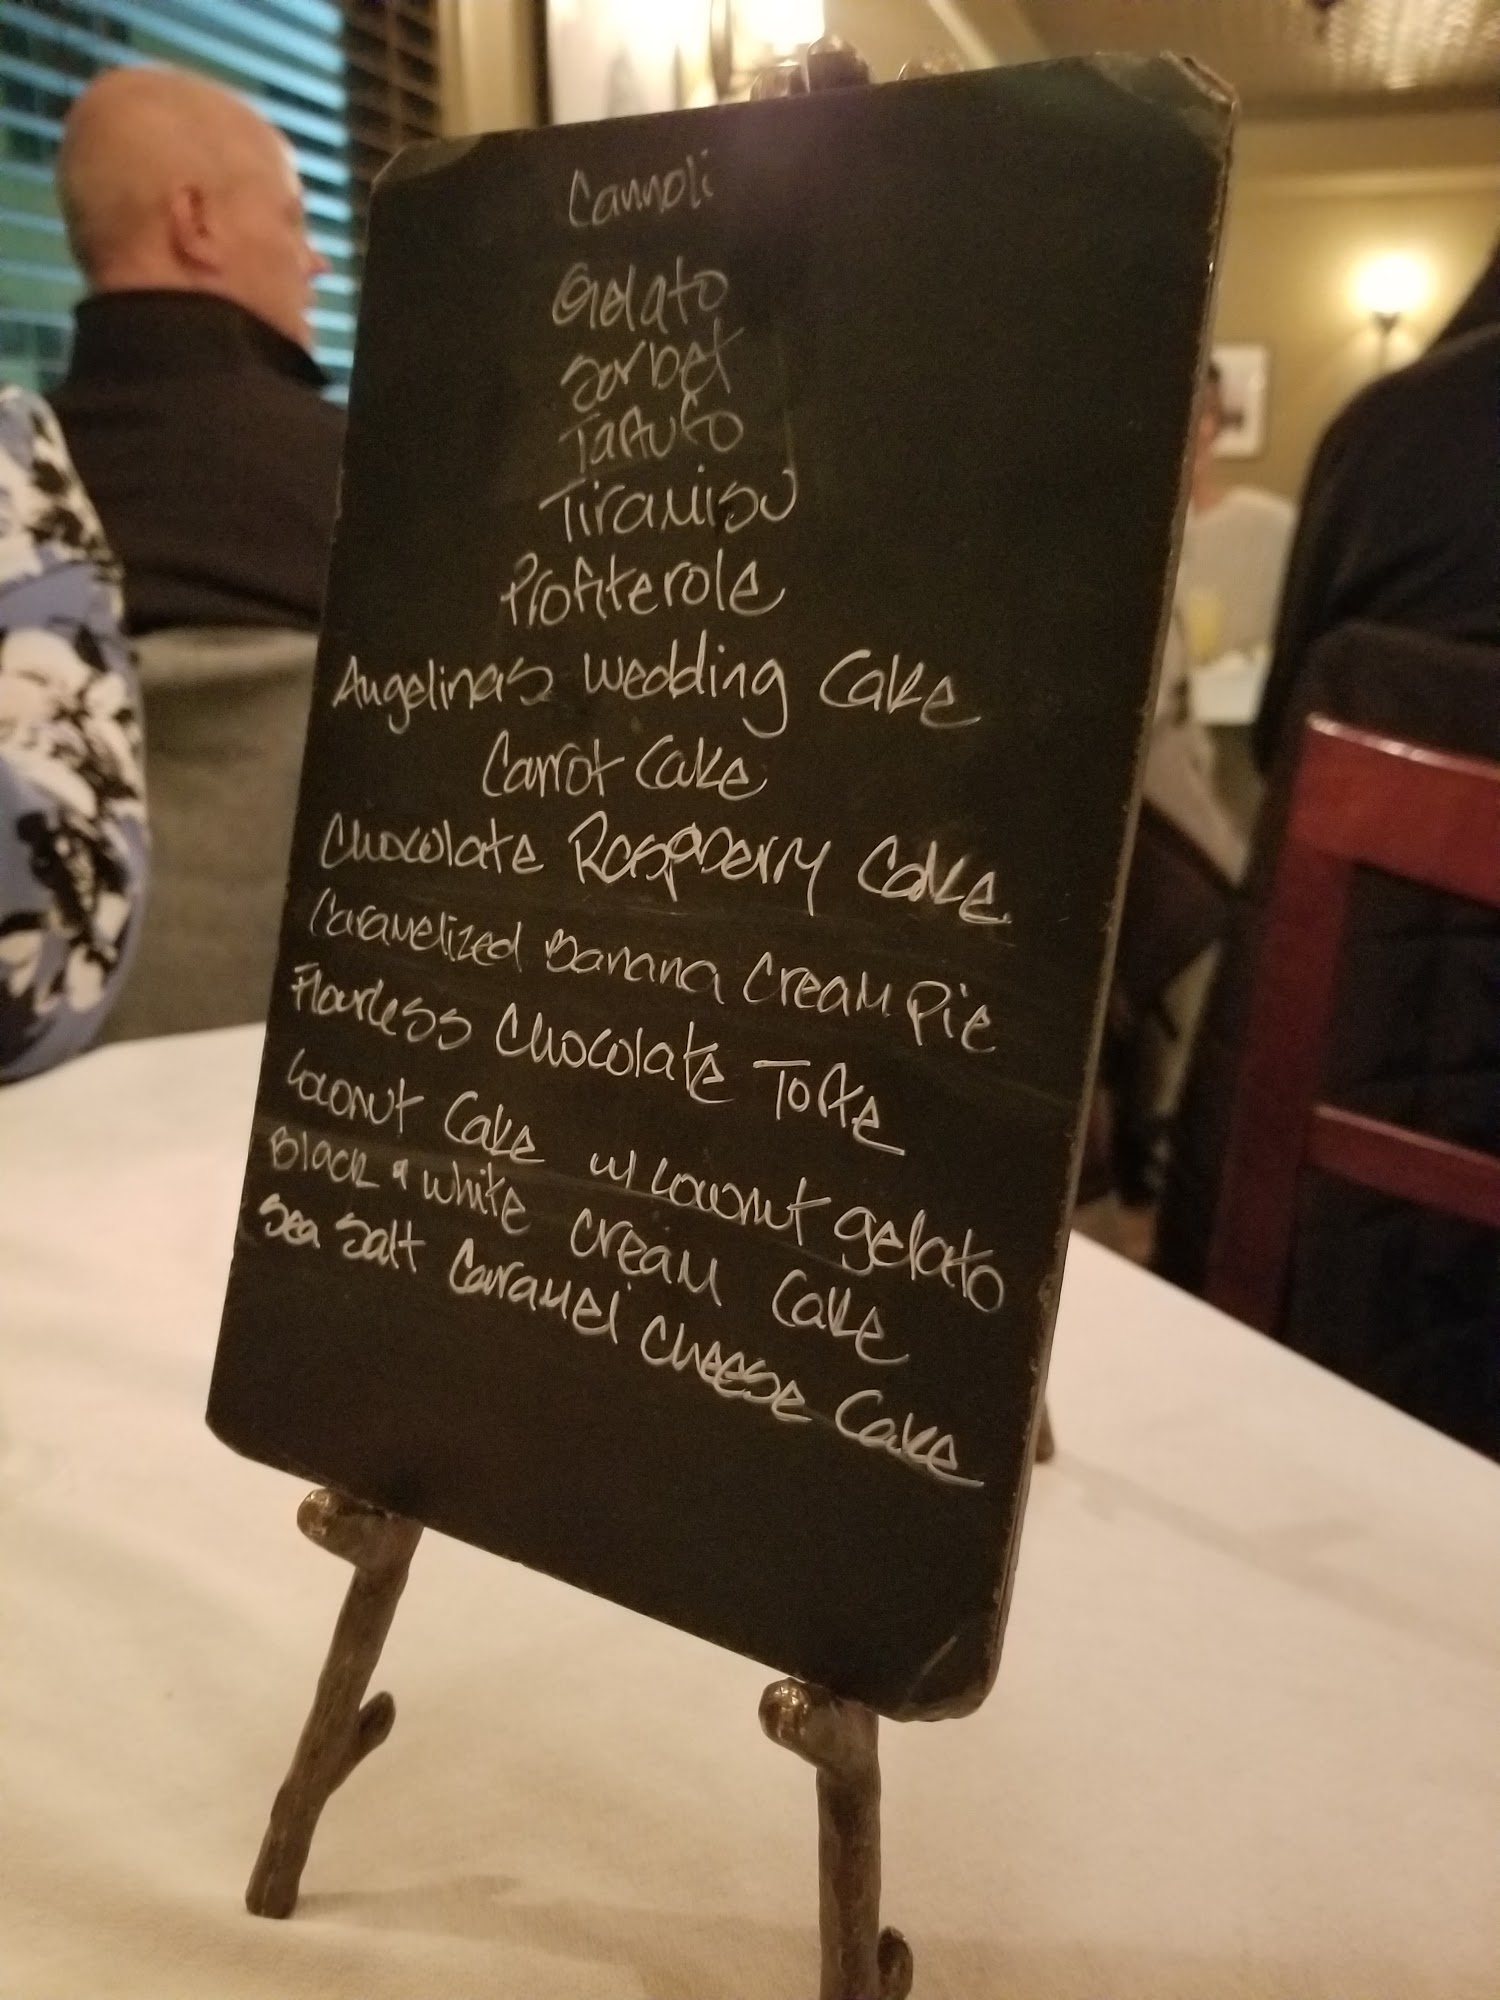 Cannoli
Gelato
Sorbet
Tartufo
Tiramisu
Profiterole
Angelinas Wedding Cake
Carrot Cake
Chocolate Raspberry Cake
Caramelized Banana Cream Pie
Flourless Chocolate Torte
Coconut Cake w/ Coconut gelato
Black & White Cream Cake
Sea Salt Caramel Cheese Cake